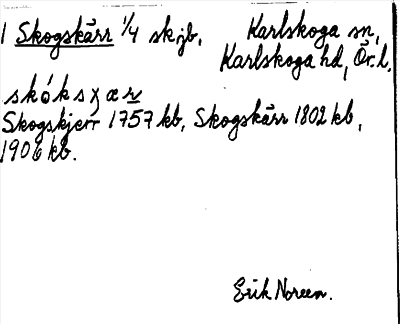 1 Skogskärr 1/4 skjb. Karlskoga sn,
Karlskoga hd, Ör. l.
skóksχær
Skogskjerr 1757 kb, Skogskärr 1802 kb,
1906 kb.
Erik Noreen.